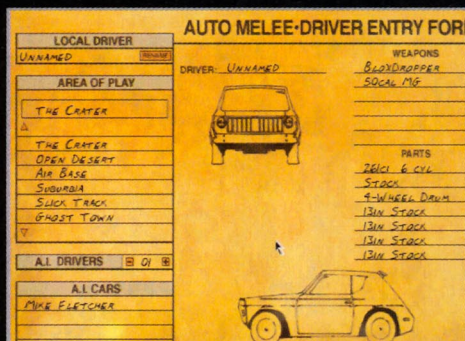 AUTO MELEE•DRIVER ENTRY FOR
LOCAL DRIVER
UNNAMED
RENAME
AREA OF PLAY
THE CRATER
THE CRATER
OPEN DESERT
AIR BASE
SUBURBIA
SLICK TRACK
GHOST TOWN
A.I. DRIVERS 01
A.I. CARS
MIKE FLETCHER
DRIVER- UNNAMED
WEAPONS
BLOXDROPPER
50CAL MG
PARTS
261CI 6 CYL
STOCK
4-WHEEL DRUM
13IN STOCK
13IN STOCK
13IN STOCK
13IN STOCK